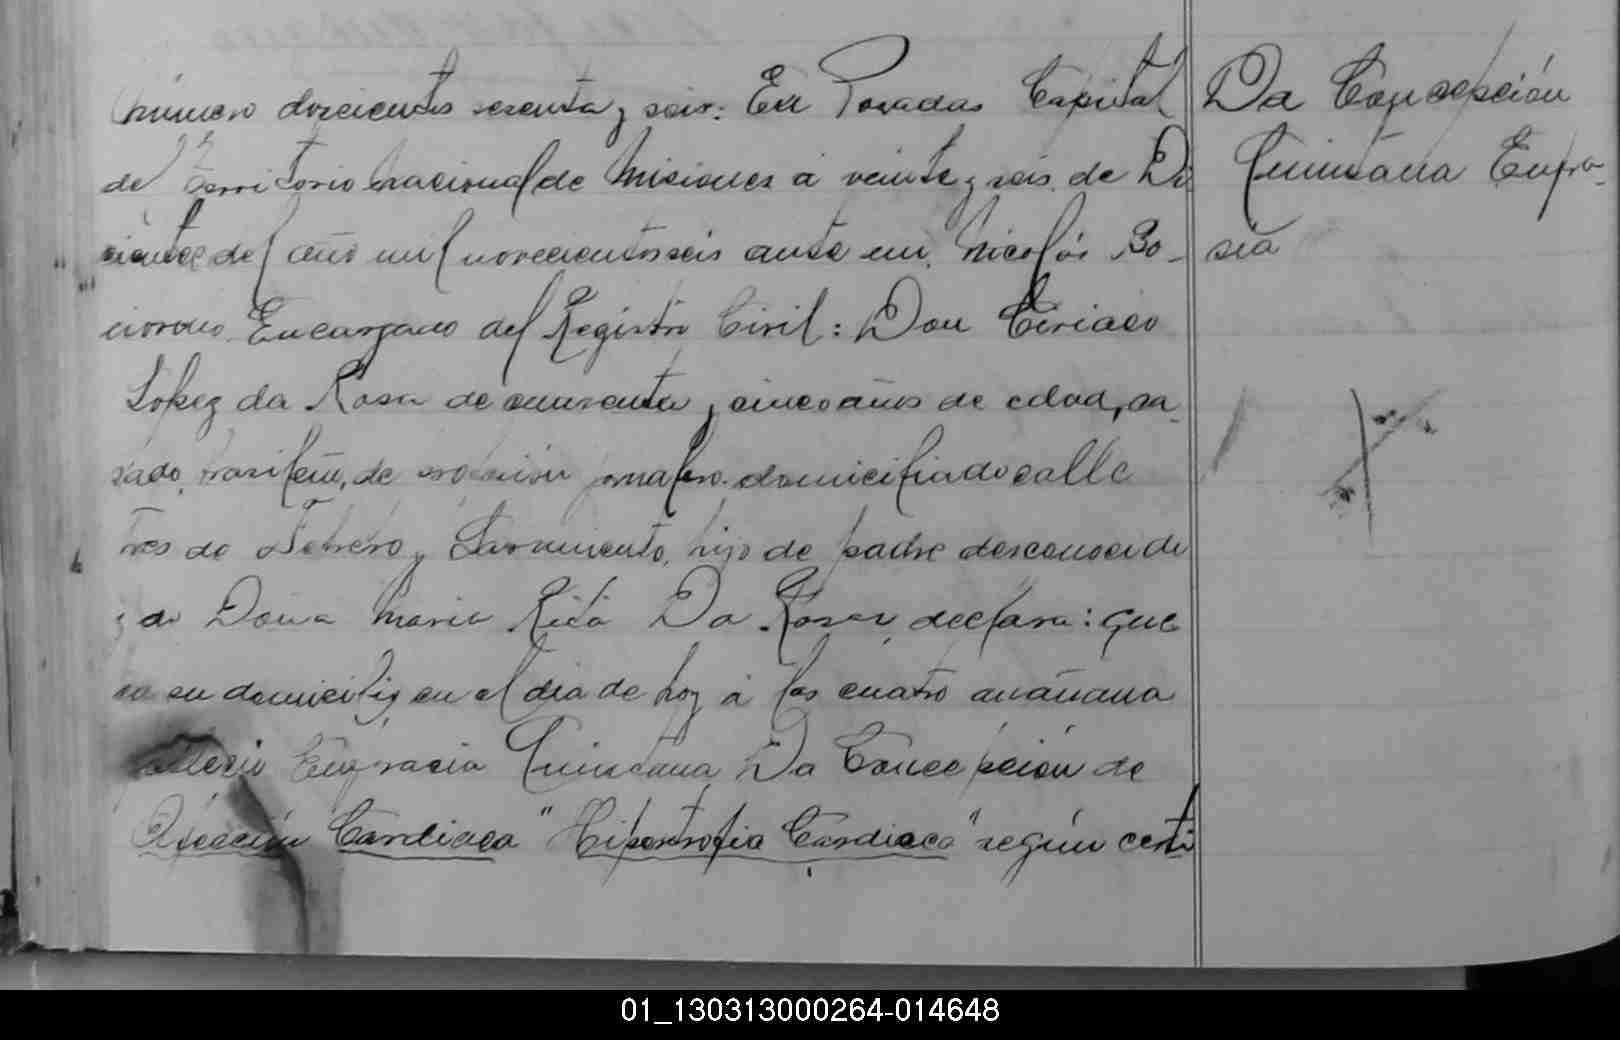 Número doscientos sesenta y seis: En Posadas Capital
del Territorio Nacional de Misiones á veinte y seis de Di
ciembre del año mil novecientos seis ante mi, Nicolás Bo-
Encargado del Registro Civil: Don Ciriaco
Lopez da Rosa de cuarenta y cinco años de edad, ca-
sado, brasileño, de profesión jornalero domiciliado calle
Tres de Febrero y Sarmiento, hijo de padre desconocido
y de Doña Maria Rita Da Rosa, declara: que
en su domicilio, en el dia de hoy á las cuatro mañana
falleció Eufracia Quintana Da Concepción de
Afección Cardiaca "Hipertrofia Cardiaca" según certi
Da Concepción
Quintana Eufra-
sia
01_130313000264-014648